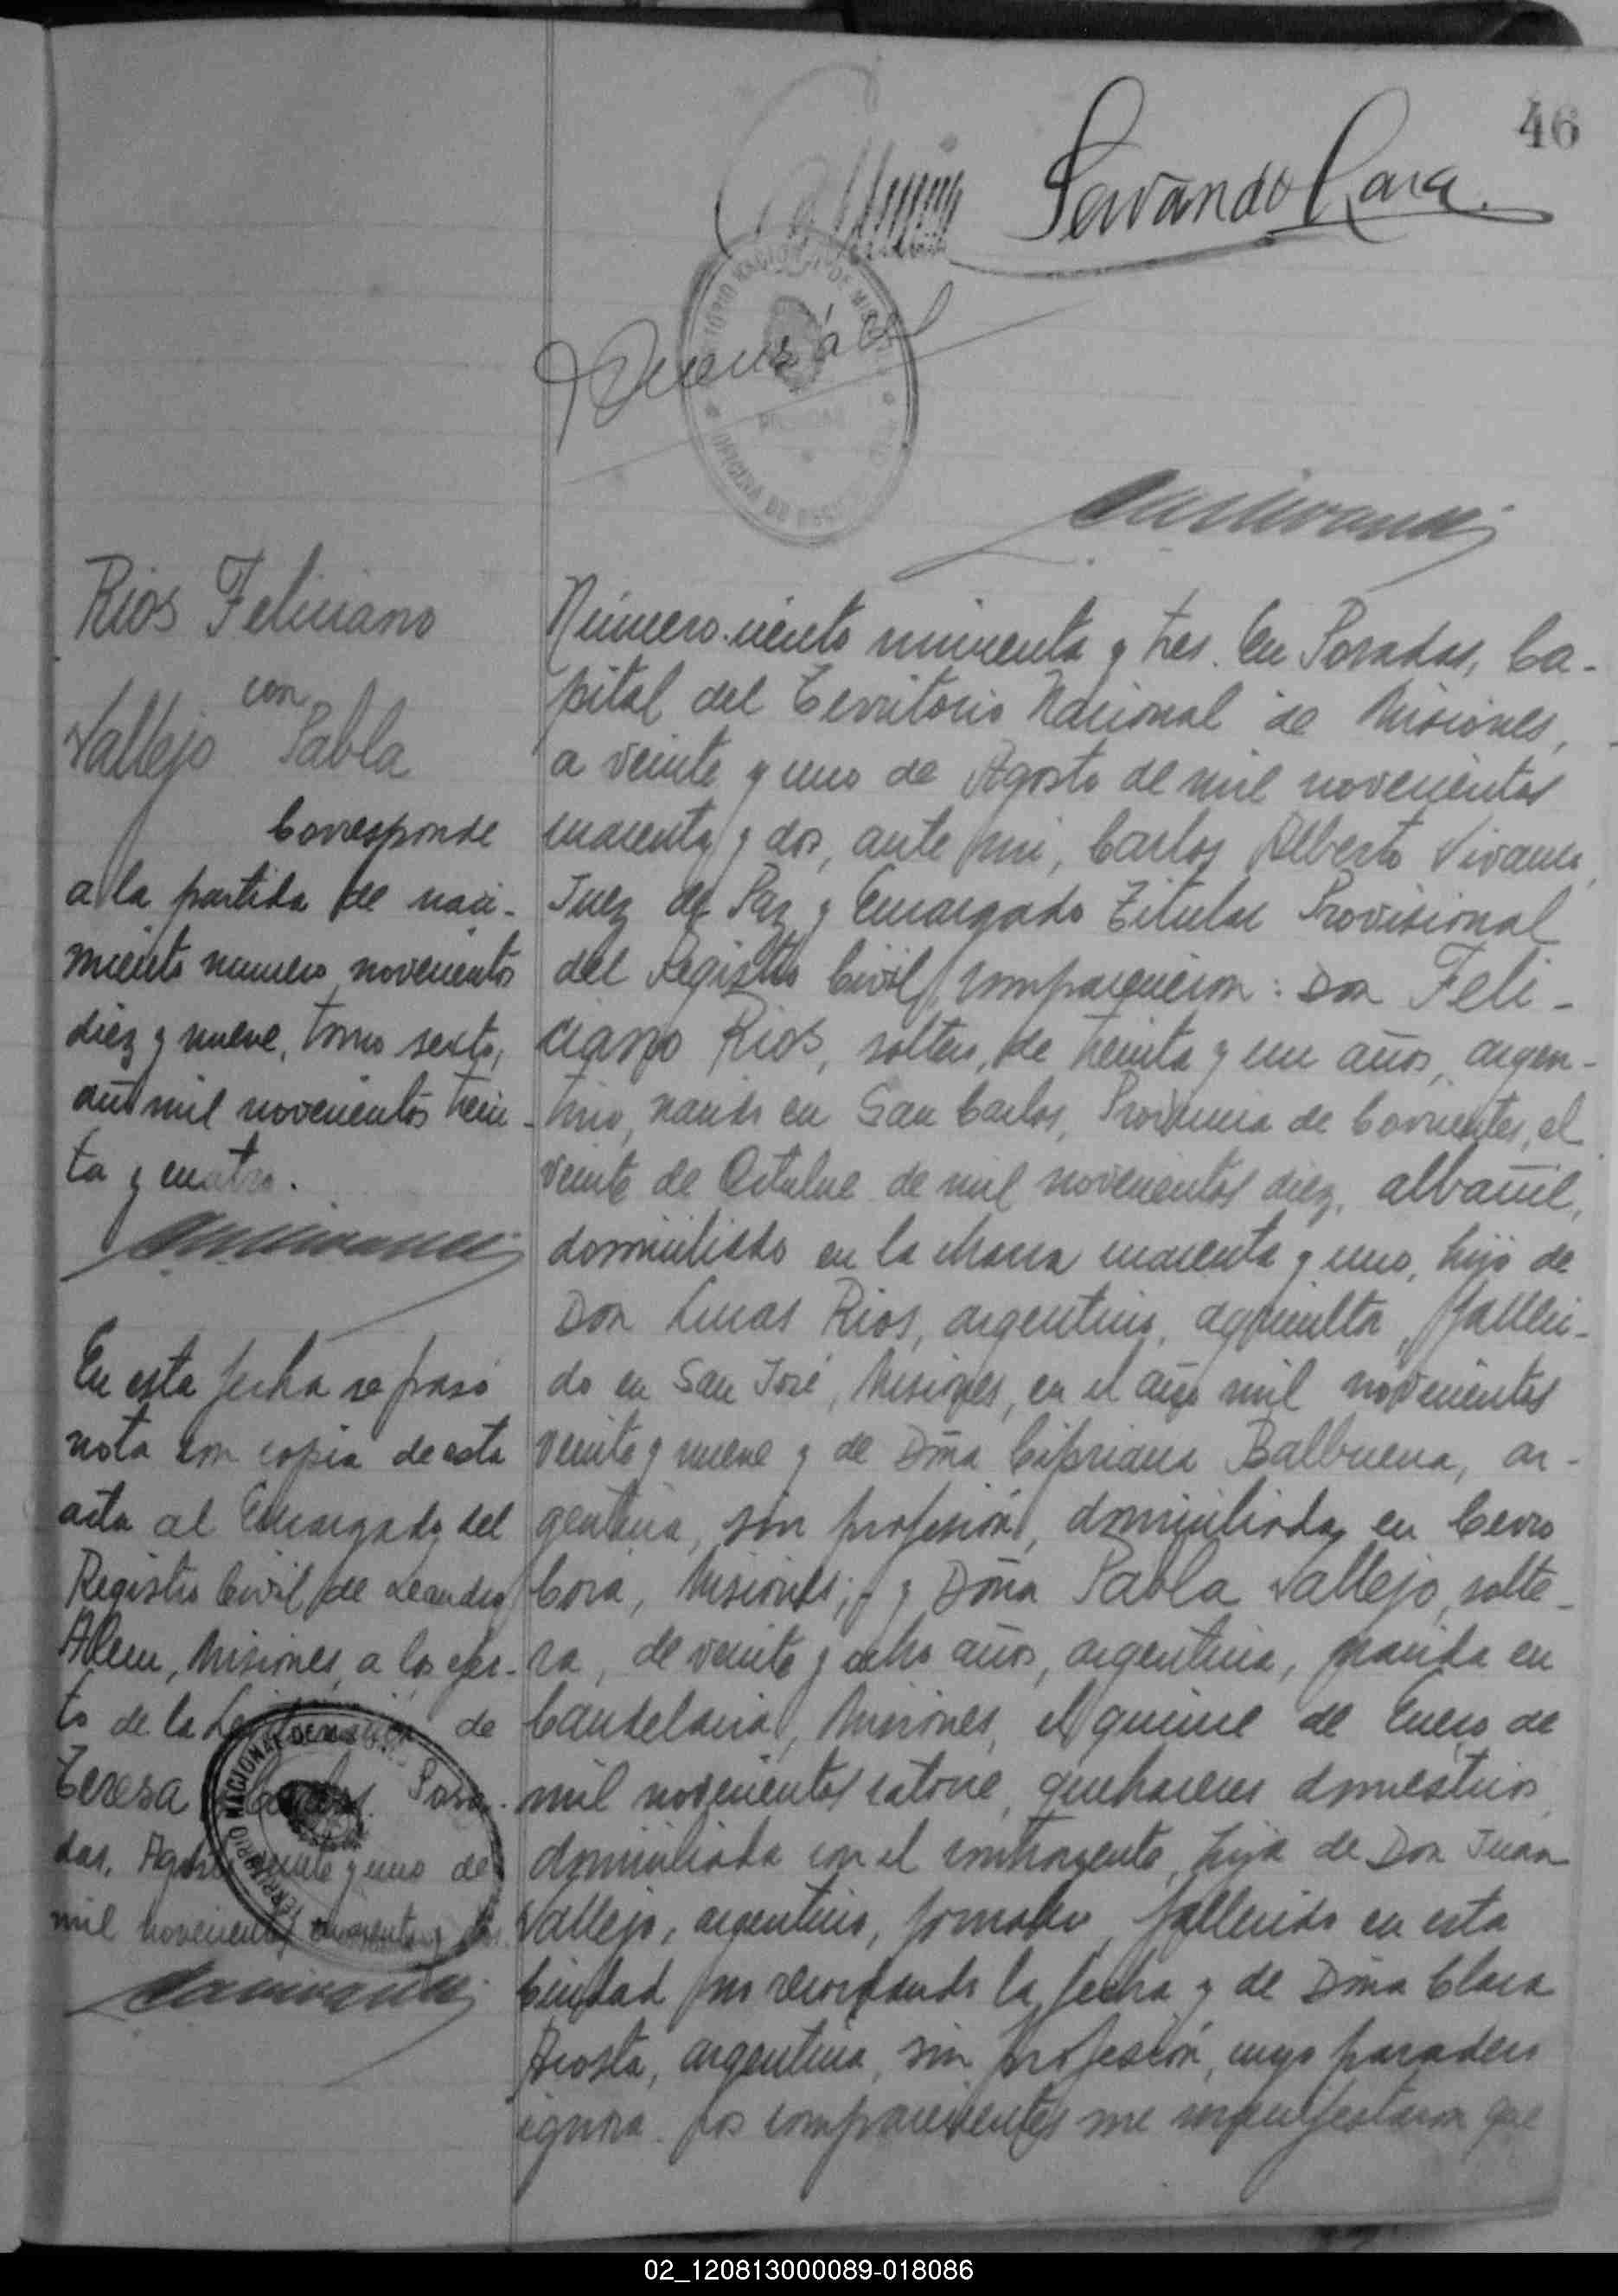 46
Servando Lara
Rios Feliciano
con
Vallejo Pabla
Corresponde
a la partida de naci-
miento numero novecientos
diez y nueve, tomo sexto,
año mil novecientos trein-
ta y cuatro.
En esta fecha se pasó
nota con copia de esta
acta al Encargado del
Registro Civil de Leandro
Alem, Misiones, a los efec-
to de la de
Teresa Posa-
das, Agosto veinte y uno de
mil novecientos cuarenta y dos.
Número ciento cincuenta y tres. En Posadas, Ca-
pital del Territorio Nacional de Misiones,
a veinte y uno de Agosto de mil novecientos
cuarenta y dos, ante mi, Carlos Alberto Vivanco,
Juez de Paz y Encargado Titular Provisional
del Registro Civil, comparecieron: Don Feli-
ciano Rios, soltero, de treinta y un años, argen-
tino, nacido en San Carlos, Provincia de Corrientes, el
veinte de Octubre de mil novecientos diez, albañil,
domiciliado en la chacra cuarenta y uno, hijo de
Don Lucas Rios, argentino, agricultor, falleci-
do en San José, Misiones, en el año mil novecientos
veinte y nueve y de Doña Cipriana Balbuena, ar-
gentina, sin profesión, domiciliada en Cerro
Corá, Misiones; y Doña Pabla Vallejo, solte-
ra, de veinte y ocho años, argentina, nacida en
Candelaria, Misiones, el quince de Enero de
mil novecientos catorce, quehaceres domésticos,
domiciliada con el contrayente, hija de Don Juan
Vallejo, argentino, jornalero, fallecido en esta
Ciudad no recordando la fecha y de Doña Clara
Acosta, argentina, sin profesión, cuyo paradero
ignora. Los comparecientes me manifestaron que
02_120813000089-018086